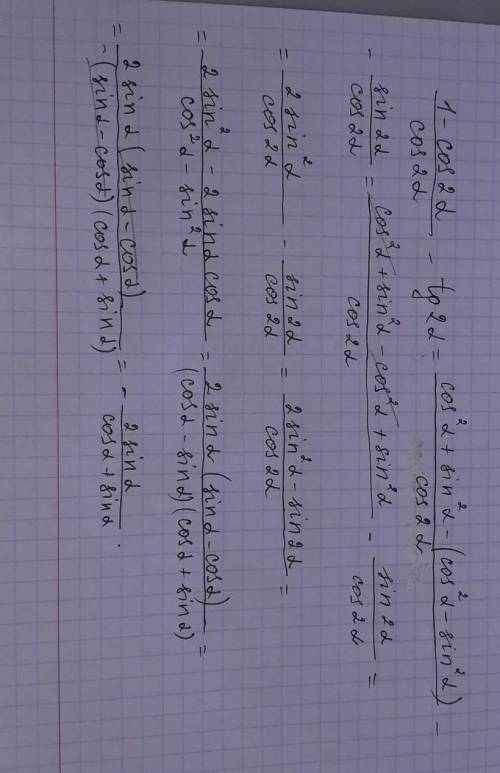 (1 - cos2α)/cos2α - tg2α = (cos²α + sin²α - (cos²α - sin²α))/cos2α -
- sin2α/cos2α = (cos²α + sin²α - cos²α + sin²α)/cos2α - sin2α/cos2α =
= 2sin²α/cos2α - sin2α/cos2α = (2sin²α - sin2α)/cos2α =
= (2sin²α - 2sinα cosα)/(cos²α - sin²α) = 2sinα(sinα - cosα)/((cosα - sinα)(cosα + sinα)) =
= 2sinα(sinα - cosα)/(-(sinα - cosα)(cosα + sinα)) = - 2sinα/(cosα + sinα).